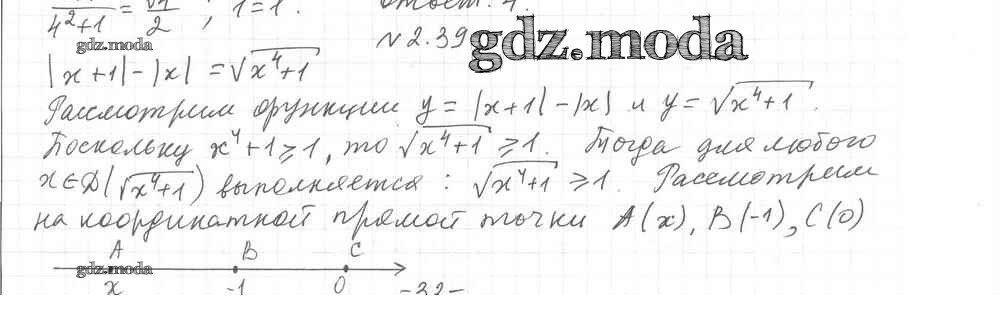 4²+1 = 2 ; 1=1.
gdz.moda
№2.39 gdz.moda
|x+1|-|x| = √x⁴+1
Рассмотрим функции y = |x+1|-|x| и y = √x⁴+1.
Поскольку x⁴+1⩾1, то √x⁴+1 ⩾1. Тогда для любого
x∈D(√x⁴+1) выполняется: √x⁴+1 ⩾1. Рассмотрим
на координатной прямой точки A(x), B(-1), C(0)
A B C
gdz.moda
x -1 0 -32-